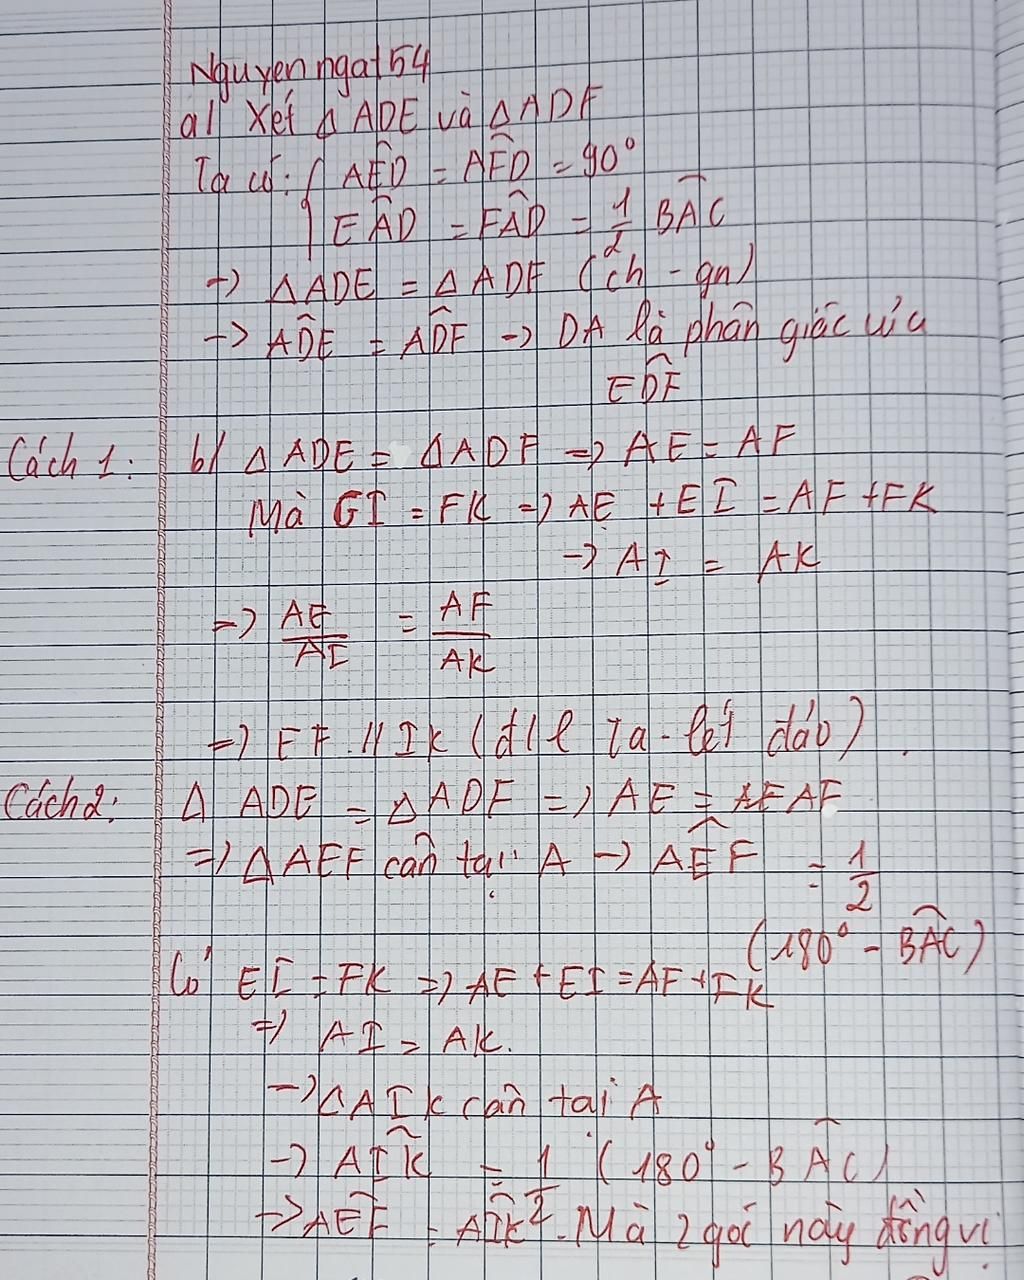 Nguyenngat54
a/ Xét Δ ADE và Δ ADF
Ta có: { AÊD = AF̂D = 90°
EÂD = FÂD = 1/2 BÂC
→ Δ ADE = Δ ADF (ch - gn)
→ AD̂E = AD̂F → DA là phân giác của
ED̂F
Cách 1: b/ Δ ADE = Δ ADF => AE = AF
Mà EI = FK => AE + EI = AF + FK
→ AI = AK
=> AE/AI = AF/AK
=> EF // IK (đ/l Ta-lét đảo).
Cách 2: Δ ADE = Δ ADF => AE = AF
=> Δ AEF cân tại A → AÊF = 1/2
(180° - BÂC)
Có EI = FK => AE + EI = AF + FK
=> AI = AK.
→ Δ AIK cân tại A
→ AÎK = 1/2 (180° - BÂC)
→ AÊF = AÎK. Mà 2 góc này đồng vị